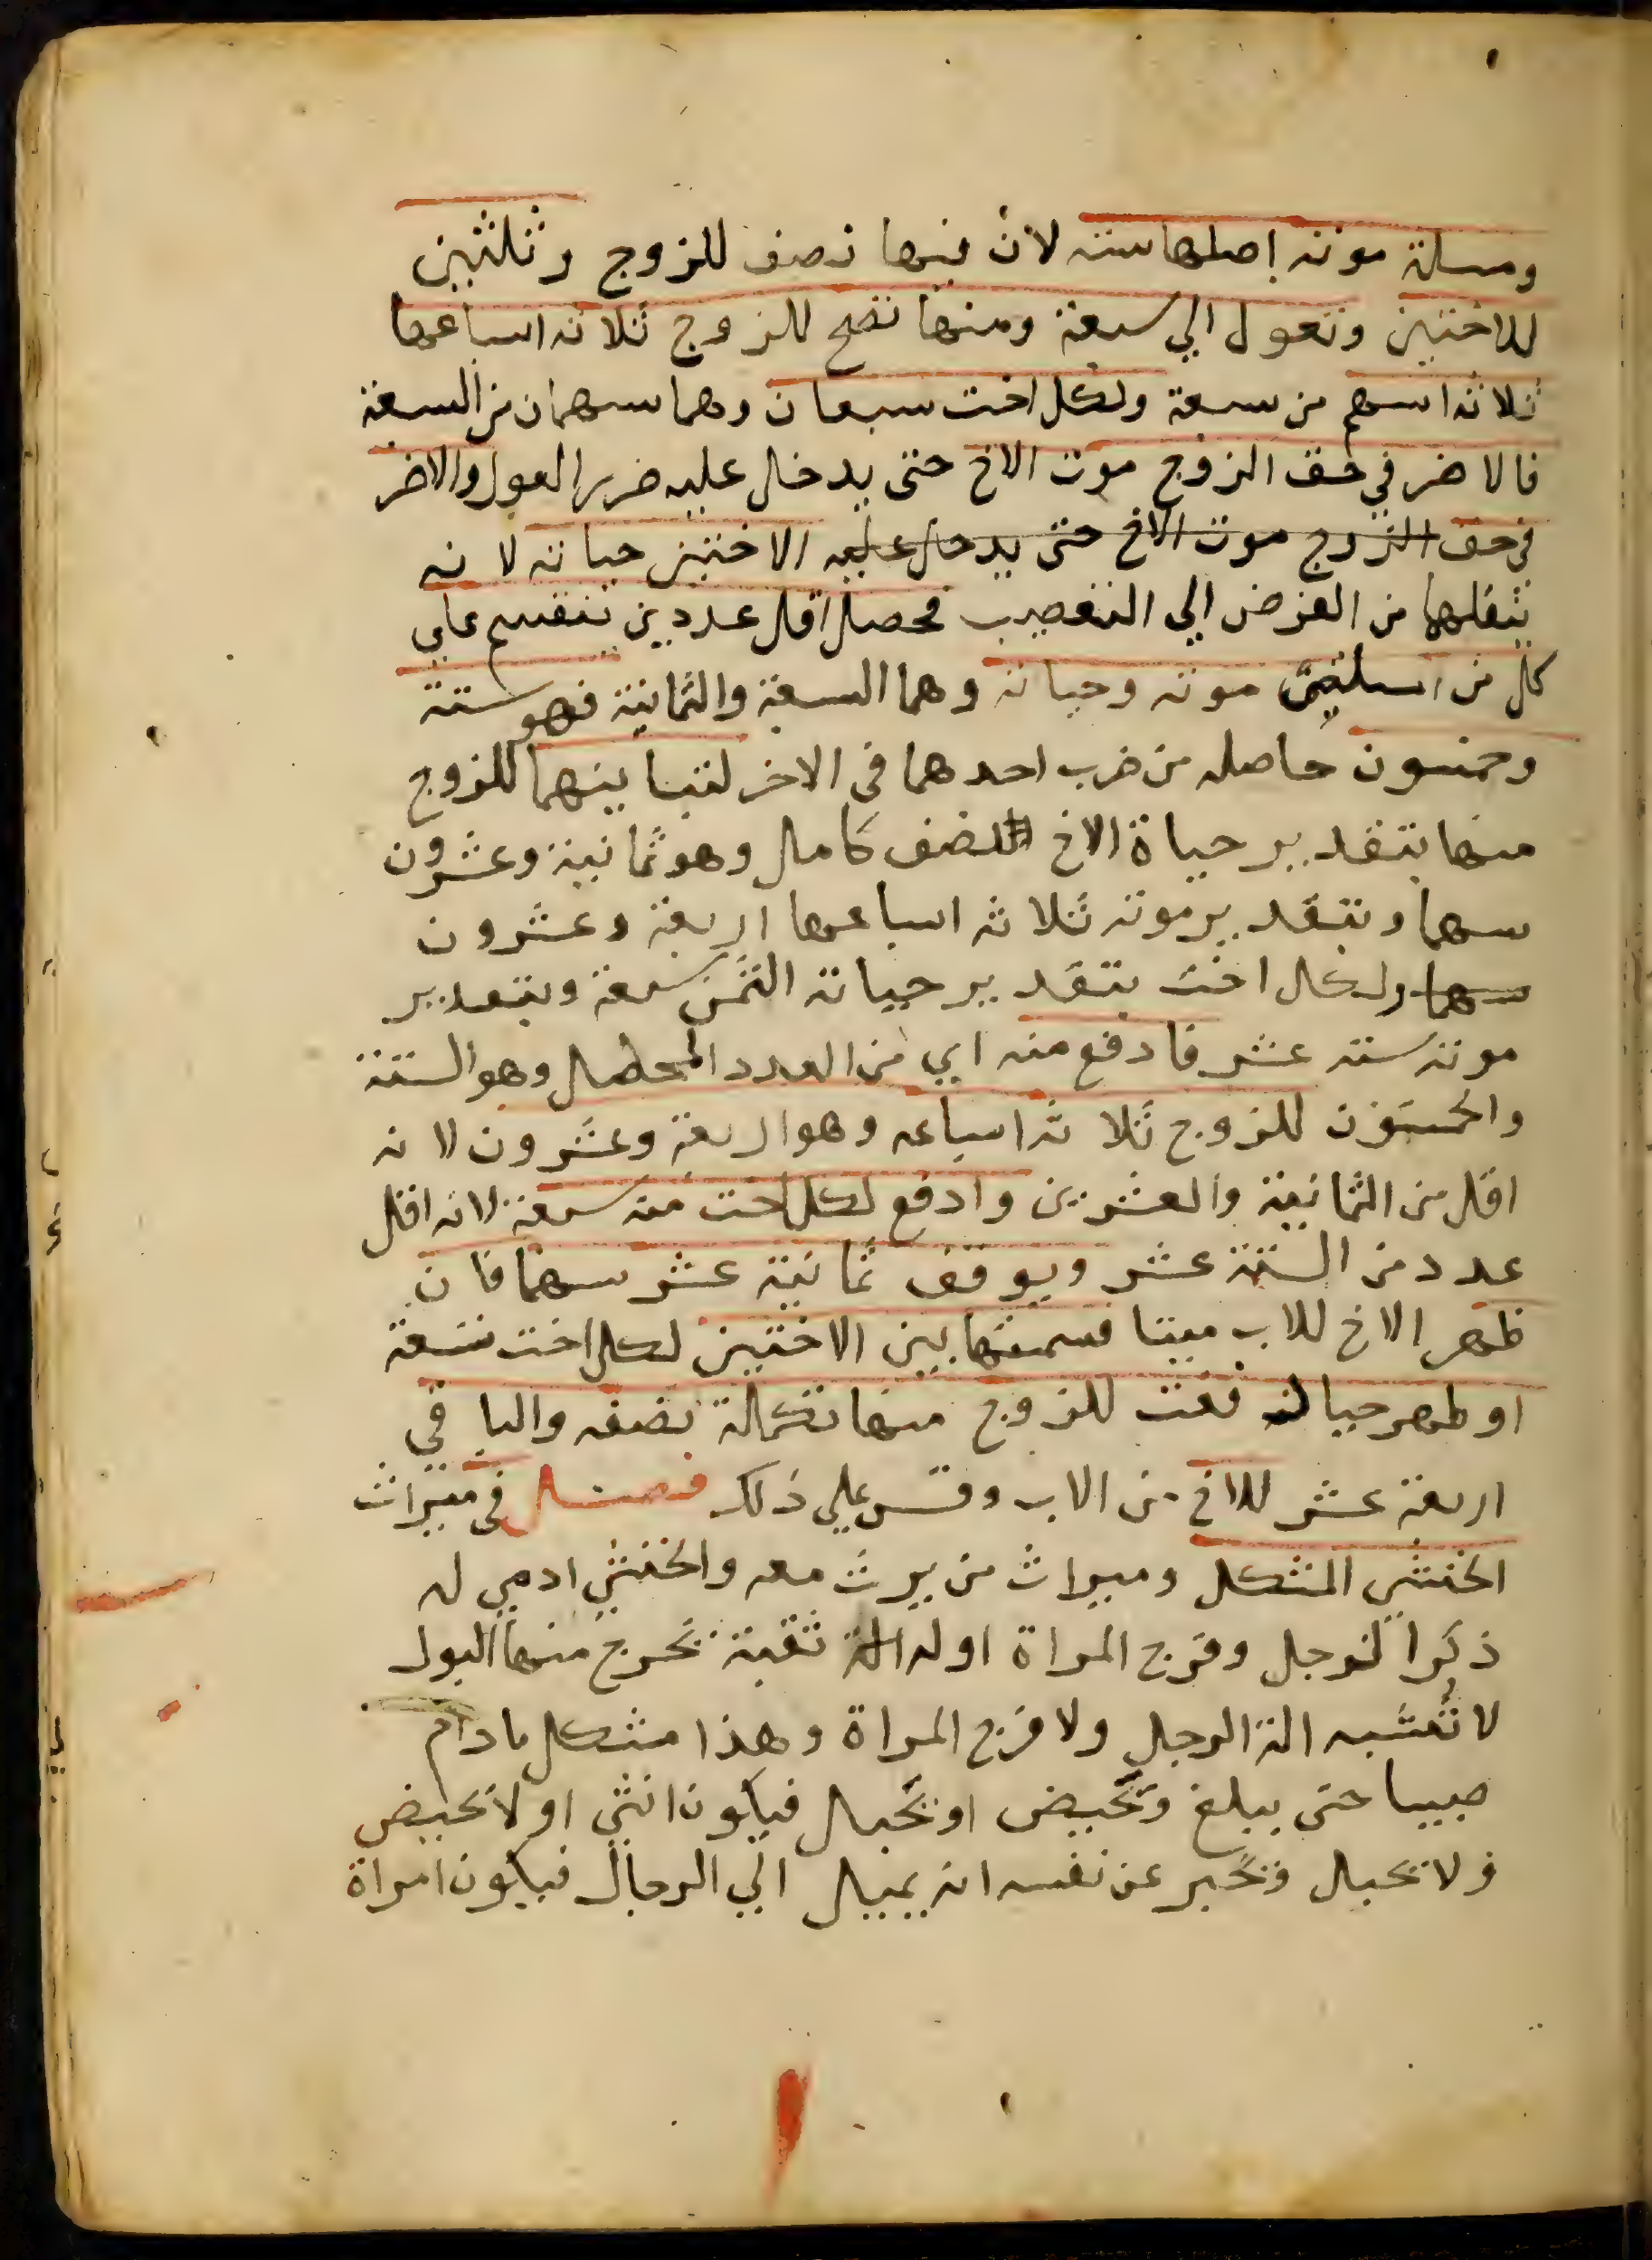 ومسلة موته اصلها ستة لان فيها نصف للزوج وثلثين
للاختين وتعول الي سبعة ومنها تصح للزوج ثلاثة اسباعها
ثلاثة اسهم من سبعة ولكل اخت سبعان وهما سهمان من السبعة
فالاضر في حق الزوج موت الاخ حتى يدخل عليه ضرر العول والاضر
في حق الزوج موت الاخ حتى يدخل عليه الاختين حياته لانه
ينقلها من الفرض الي التعصيب فحصل اقل عدد ين تنقسم علي
كل من مسلتي موته وحياته وهما السبعة والثمانية فهو ستة
وخمسون حاصله من ضرب احدهما في الاخر لتباينهما للزوج
منها بتقدير حياة الاخ النصف كامل وهو ثمانية وعشرون
سهما وبتقدير موته ثلاثة اسباعها اربعة وعشرون
سهما ولكل اخت بتقدير حياته الثمن سبعة وبتقدير
موته ستة عشر فادفع منه اي من العدد المحصل وهو الستة
والخمسون للزوج ثلاثة اسباعه وهو اربعة وعشرون لانه
اقل من الثمانية والعشرين وادفع لكل اخت منه سبعة لانه اقل
عدد من الستة عشر ويوقف ثمانية عشر سهما فان
ظهر الاخ للاب ميتا قسمتها بين الاختين لكل اخت تسعة
او ظهر حيا دفعت للزوج منها تكملة نصفه والباقي
اربعة عشر للاخ من الاب وقس علي ذلك فصل في ميراث
الخنثى المشكل وميراث من يرث معه والخنثي ادمي له
ذكر الرجل وفرج المراة او له الة ثقبة تخرج منها البول
لا تشبه الة الرجل ولا فرج المراة وهذا مشكل ما دام
صبيا حتى يبلغ وتحيض او تحبل فيكون انثي او لا تحيض
ولا تحبل وتخبر عن نفسه انه يميل الي الرجال فيكون امراة